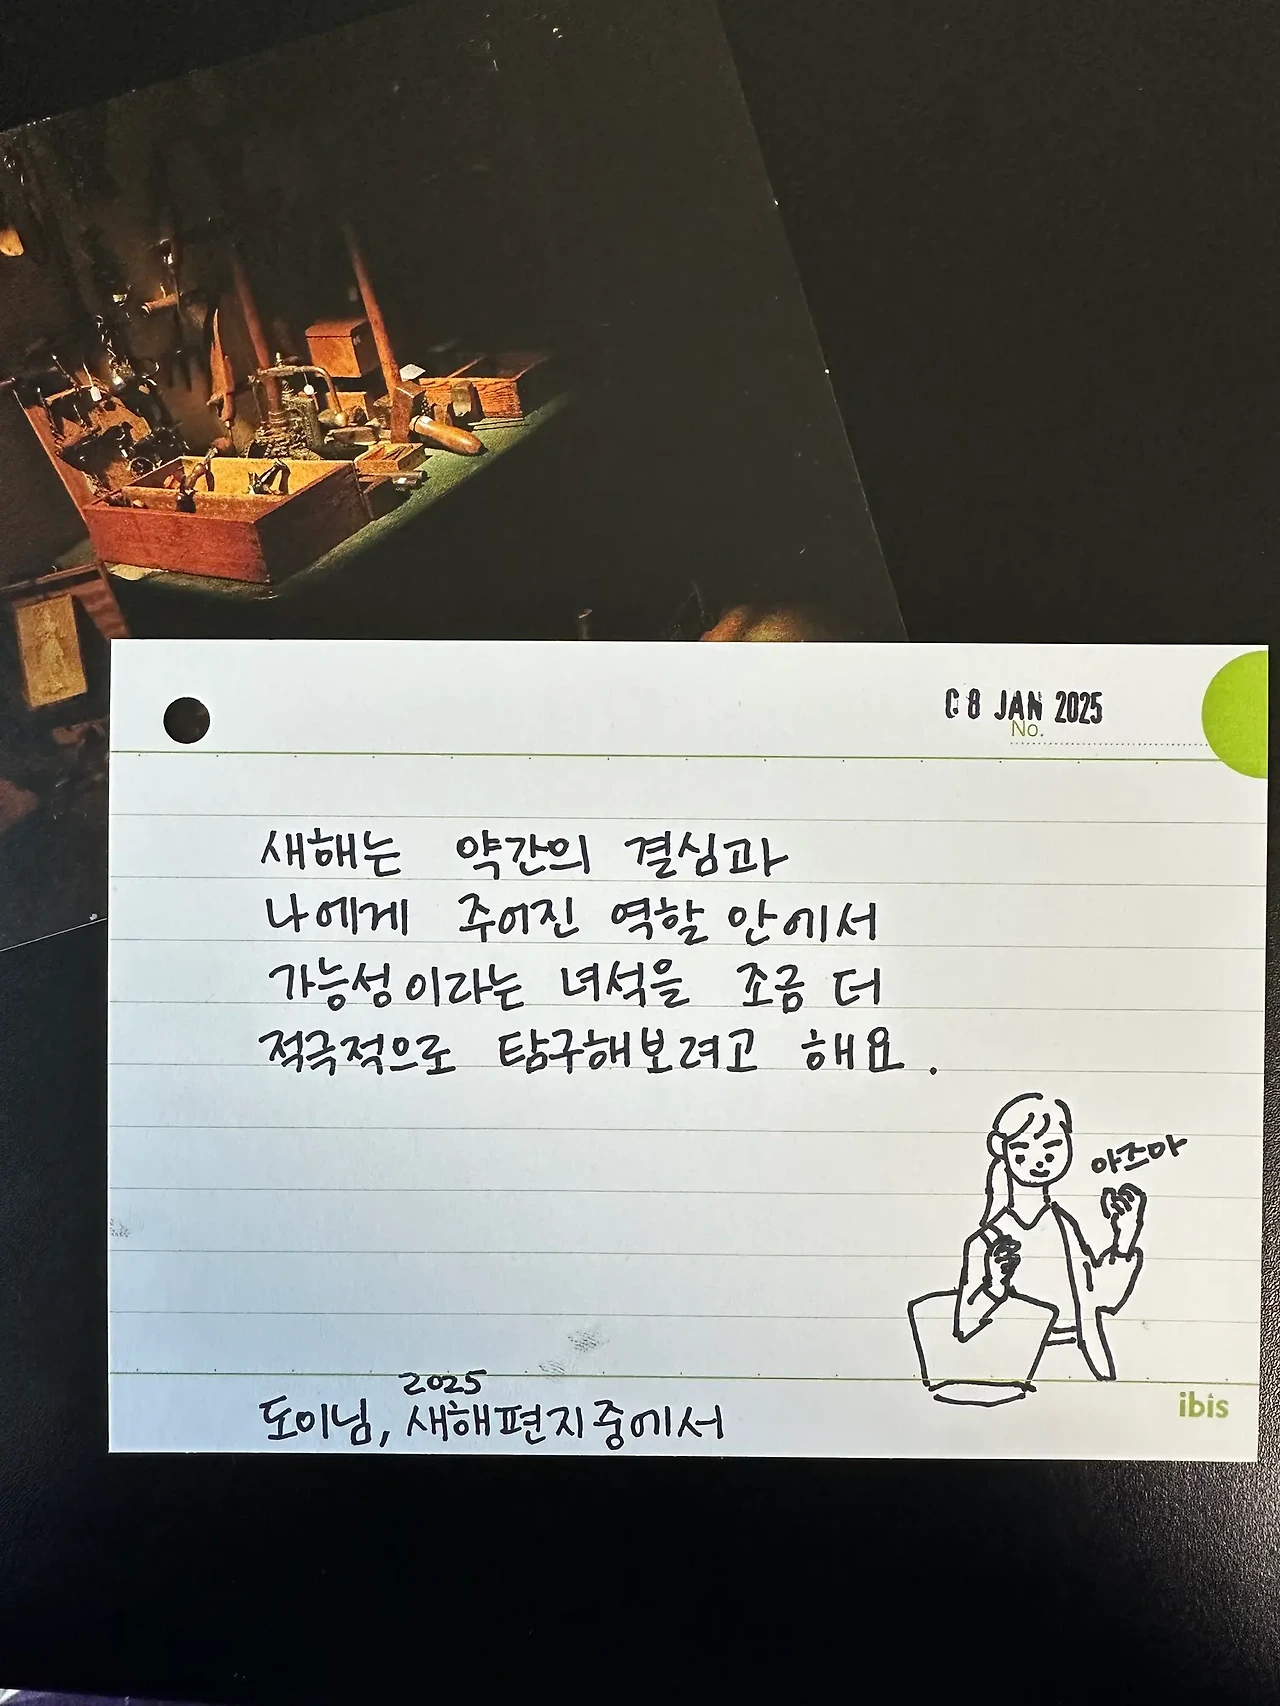 08 JAN 2025
No.
새해는 약간의 결심과
나에게 주어진 역할 안에서
가능성이라는 녀석을 조금 더
적극적으로 탐구해보려고 해요.
아즈마
2025
도이님, 새해편지중에서
ibis